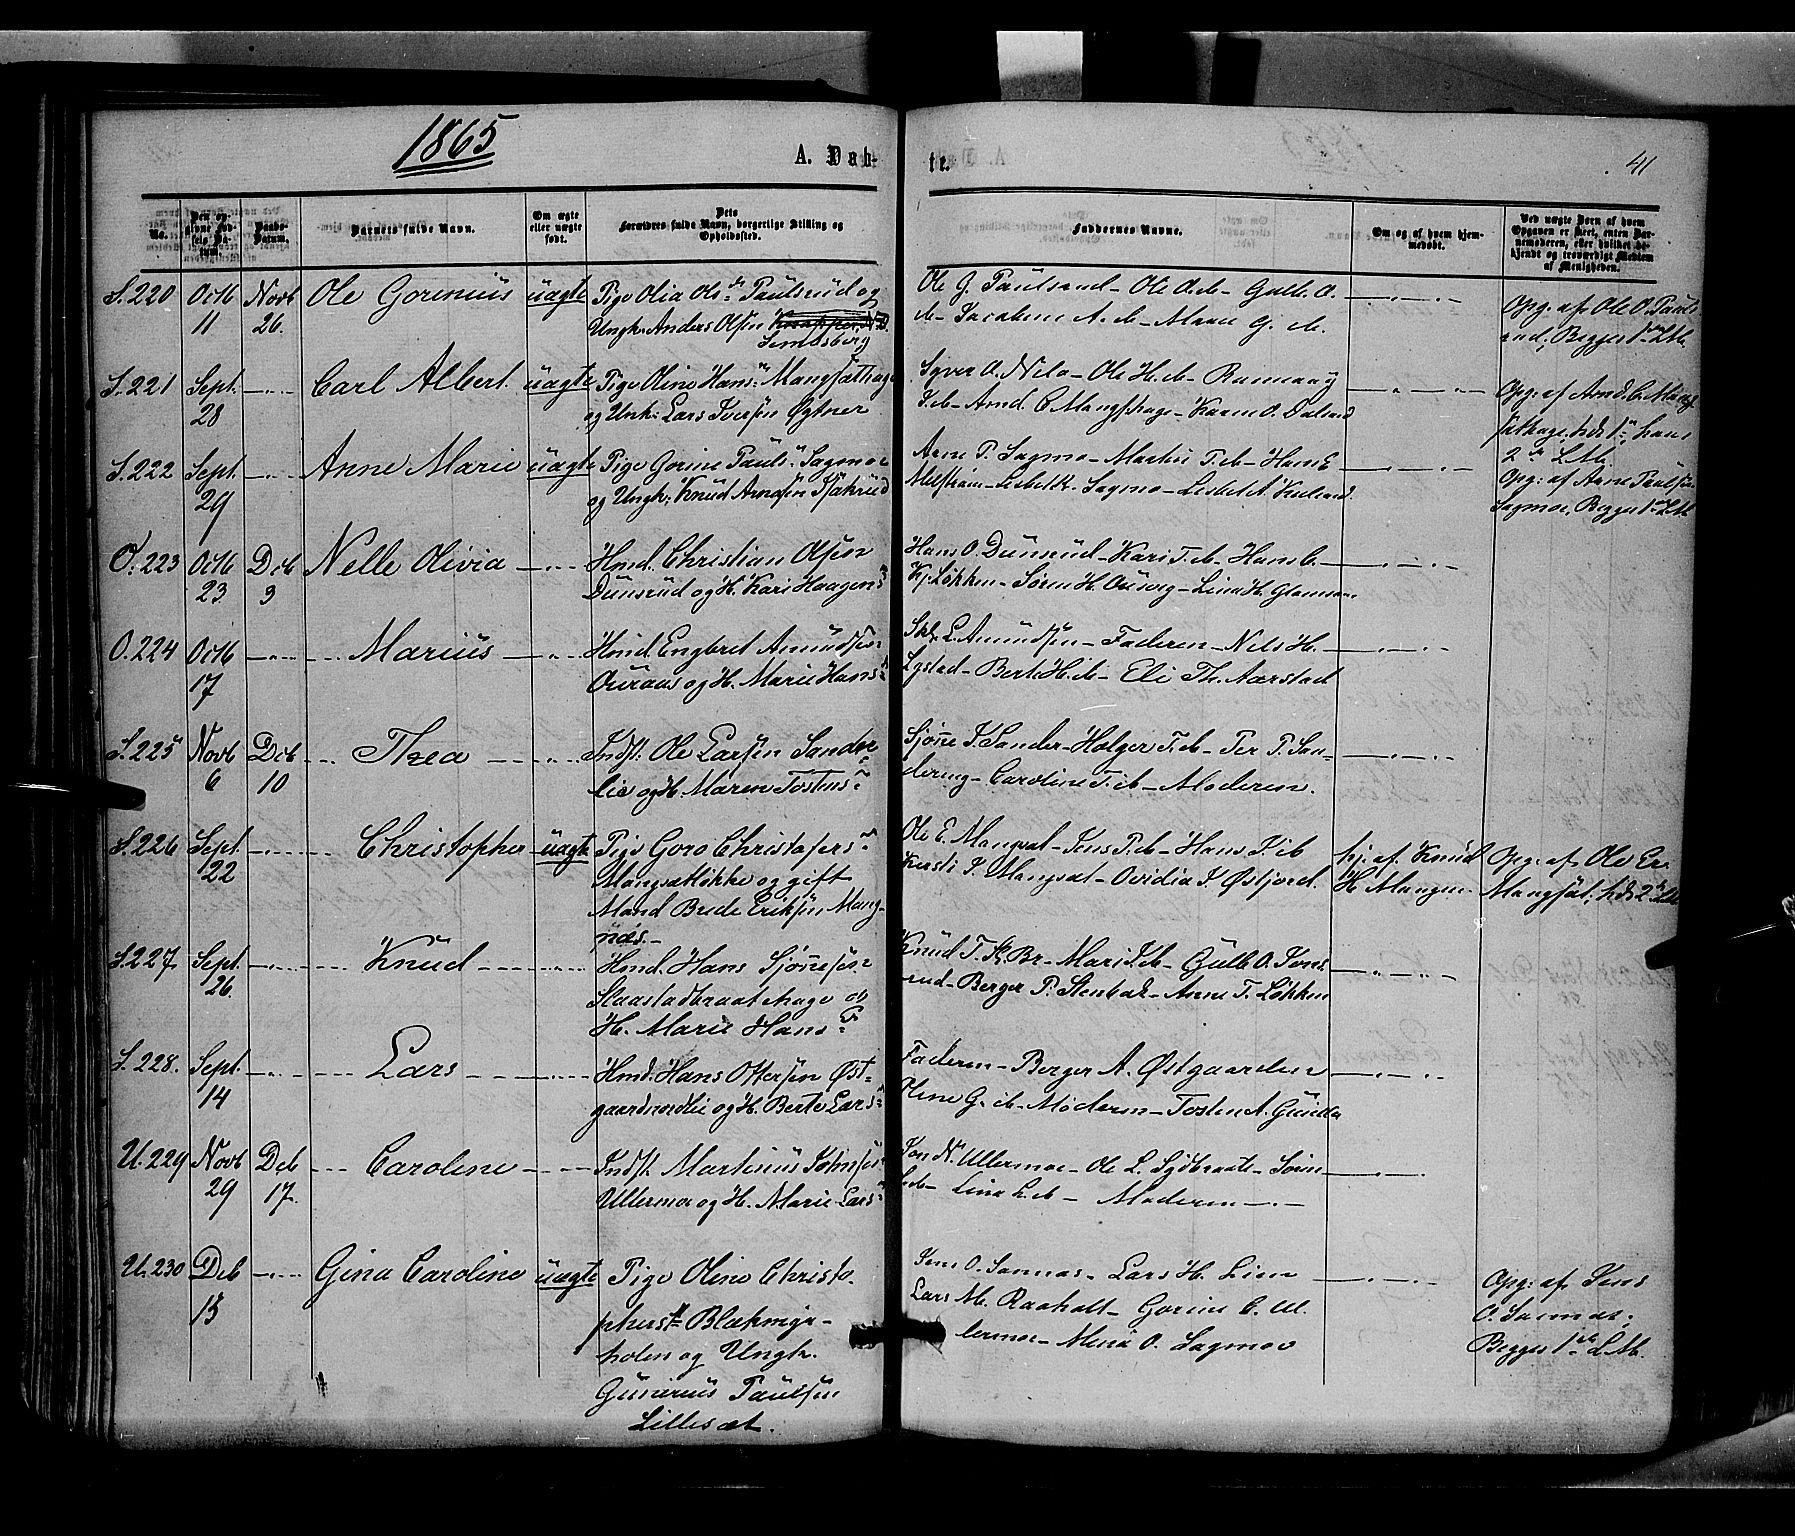 1865
A. Døb-
te.
41
No.
Den opgivne Fødsels Datum.
Daabs-Datum.
Barnets fulde Navn.
Om ægte eller uægte født.
Dets Forældres fulde Navn, borgerlige Stilling og Opholdssted.
Faddernes Navne.
Om og af hvem hjemmedøbt.
Ved uægte Børn af hvem Opgaven er skeet, enten Barnemoderen, eller hvilket bekjendt og troværdigt Medlem af Menigheden.
S. 220 Octb 11 Novb 26. Ole Gorinius uægte
Pige Olia Ols dr Paulsrud og
Ungk. Anders Olsen
Simosberg
Ole G. Paulsrud - Ole O. ib - Gulb. O.
ib - Jacobine A. ib - Maren G. ib.
Opg. af Ole O. Pauls
rud, Begges 1ste Lb.
S. 221 Sept. 28 Carl Albert. uægte
Pige Oline Hans dr Mangsæthage
og Unk. Lars Iversen Øgtner
Syver O. Nilo - Ole H. ib -
I. ib - Arnd. C. Mangshage - Karen O.
Opg. af Arnd. C. Mang
sæthage, hds 1ste hans
2den Lb.
S. 222 Sept. 29 Anne Marie uægte
Pige Gorine Pauls dr Sagmoe
og Ungk. Knud Arnesen
Arne P. Sagmo - Martin P. ib - Hans E
- Lisbet K. Sagmo - Lisbet A.
Opg. af Arne Paulsen
Sagmoe, Begges 1ste Lb
O. 223 Octb 23 Deb 3 Nelle Olivia
Hmd. Christian Olsen
Dunsrud og H. Kari Haagens dr
Hans O. Dunsrud - Kari T. ib - Hans C.
Kj. Løkken - Søren H. - Lina H.
O. 224 Octb 17 Marius
Hmd. Engbret Amundsen
Ouraas og H. Marie Hans dr
L. Amundsen - Faderen - Nils H.
Lystad - Berte H. ib - Eli Th. Aarstad
S. 225 Novb 6 Deb 10 Thea
Indst. Ole Larsen Sandre
lie og H. Maren Tostens dr
Sjønne J. Sander - Holger T. ib - Per P. San-
dereng - Caroline T. ib - Moderen.
S. 226 Sept. 22 Christopher uægte
Pige Goro Christofers dr
Mangsætløkke og gift
Mand Brede Eriksen Mang-
næs.
Ole E. Mangsæt - Jens P. ib - Hans P. ib
Kersti P. Mangsæt - Ovidia J. Østjord.
hj. af Knud
H. Mangen.
Opg. af Ole Er.
Mangsæt, hds 2den Lb
S. 227. Sept. 26. Knud
Hmd. Hans Sjønnesen
Slaastadbraatehage og
H. Marie Hans dr
Knud T. Sk. Br - Mari K. ib - Gulb. O. Jons
rud - Berger P. Stenbæk - Anne T. Løkken
S. 228. Sept. 14 Lars
Hmd. Hans Ottersen Øst-
gaardnordlie og H. Berte Lars dr
Faderen - Berger A. Østgaarden
Oline G. ib - Moderen - Tosten A.
U. 229 Novb 29 Deb 17. Caroline
Indst. Martinus Johnsen
Ullermoe og H. Marie Lars dr
Jon N. Ullermoe - Ole L. Sydbraate - Søren
L. ib - Lina L. ib - Moderen
U. 230 Deb 15 Gina Caroline uægte
Pige Oline Christo-
phers dr Blækmyr-
holen og Ungk.
Gunerius Paulsen
Lillesæt.
Jens O. Sannæs - Lars H. Lien
Lars M. Raaholt - Gorine C. Ul
lermoe - Mina O. Sagmoe
Opg. af Jens
O. Sannæs,
Begges 1ste Lb.